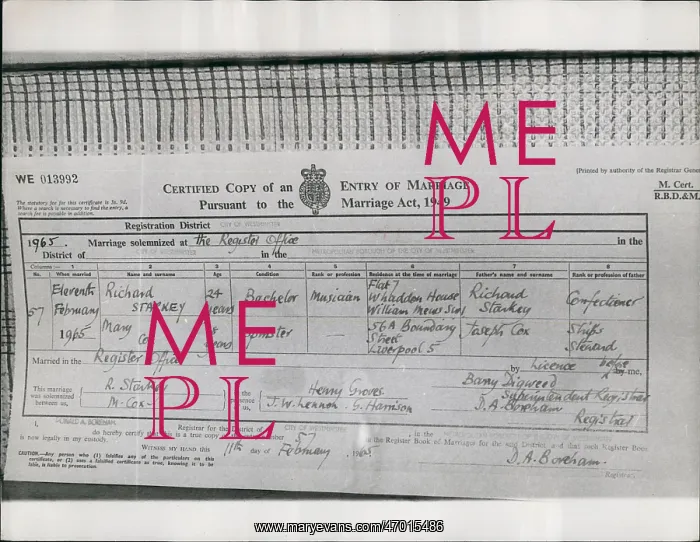 WE 013992
(Printed by authority of the Registrar Gener
The statutory fee for this certificate is 3s. 9d.
Where a search is necessary to find the entry, a
search fee is payable in addition.
CERTIFIED COPY of an ENTRY OF MARRIAGE
Pursuant to the Marriage Act, 1949
M. Cert.
R.B.D.&M.
Registration District CITY OF WESTMINSTER
1965. Marriage solemnized at the Register Office in the
District of CITY OF WESTMINSTER in the METROPOLITAN BOROUGH OF THE CITY OF WESTMINSTER
Columns:— 1 2 3 4 5 6 7 8
No. When married Name and surname Age Condition Rank or profession Residence at the time of marriage Father's name and surname Rank or profession of father
57 Eleventh February 1965
Richard STARKEY 24 years Bachelor Musician Flat 7 Whaddon House William Mews SW1 Richard Starkey Confectioner
Mary years Spinster 56A Boundary Street Liverpool 5 Joseph Cox Ships Steward
Married in the Register Office by Licence before by me,
This marriage was solemnized between us,
R. Starkey
M. Cox
in the presence of us,
Henry Groves
J. W. Lennon. G. Harrison
Barry Digweed
Superintendent Registrar
D. A. Boreham
Registrar
I, DONALD A. BOREHAM, Registrar for the District of CITY OF WESTMINSTER, in the
do hereby certify that this is a true copy 57 in the Register Book of Marriages for the said District, and that such Register Book
is now legally in my custody.
WITNESS MY HAND this 11th day of February, 1965.
CAUTION.—Any person who (1) falsifies any of the particulars on this
certificate, or (2) uses a falsified certificate as true, knowing it to be
false, is liable to prosecution
D. A. Boreham
Registrar
ME
PL
ME
PL
www.maryevans.com/47015486